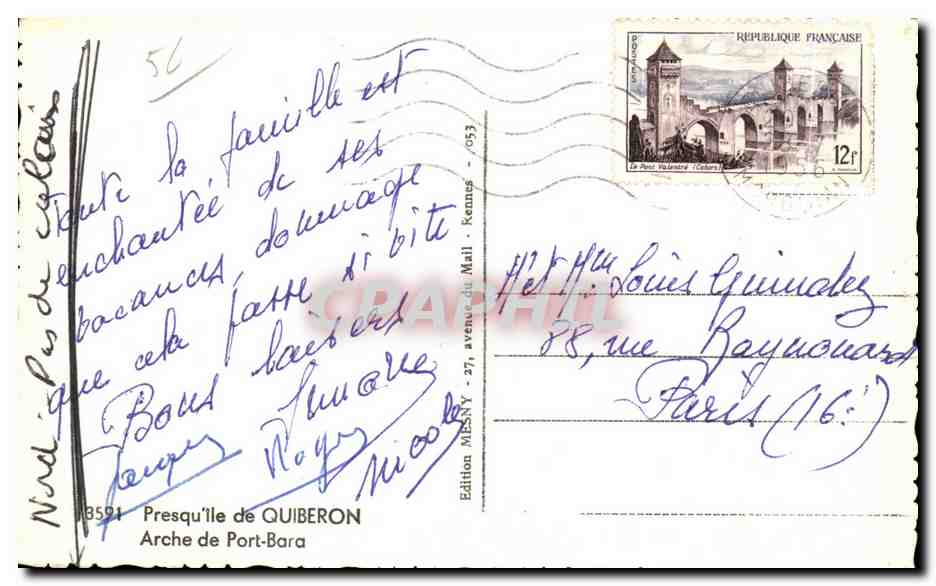 56
Nord-Pas de Calais
Toute la famille est
enchantée de ses
vacances, dommage
que cela passe si vite
Bons baisers
Simone
Jacques Roger
Nicole
13591 Presqu'île de QUIBERON
Arche de Port-Bara
Edition MESNY - 27, avenue du Mail - Rennes - 053
CRAPHIL
POSTES
REPUBLIQUE FRANÇAISE
Le Pont Valentré (Cahors)
12f
Mr et Mme Louis
88, rue Raynouard
Paris (16e)